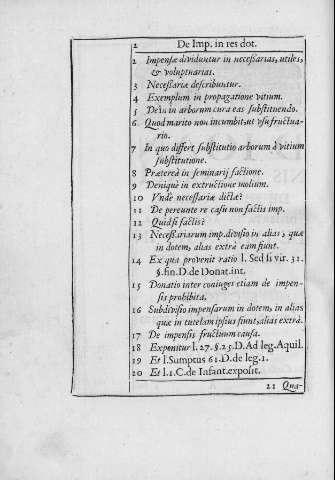 2 De Imp. in res dot.
2 Impensæ dividuntur in neceßarias, utiles,
& voluptuarias.
3 Neceßariæ describuntur.
4 Exemplum in propagatione vitium.
5 Dein in arborum cura eas substituendo.
6 Quod marito non incumbit, ut usu fructua-
rio.
7 In quo differt substitutio arborum à vitium
substitutione.
8 Prætereà in seminarij factione.
9 Denique in extructione molium.
10 Vnde neceßariæ dictæ?
11 De pereunte re casu non factis imp.
12 Quid si factis?
13 Neceßariarum imp. divisio in alias, quæ
in dotem, alias extrà eam fiunt.
14 Ex qua provenit ratio l. Sed si vir. 31.
§. fin. D. de Donat. int.
15 Donatio inter coniuges etiam de impen-
sis prohibita.
16 Subdivisio impensarum in dotem, in alias
quæ in tutelam ipsius fiunt, alias extrà.
17 De impensis fructuum causa.
18 Expenitur l. 27. §. 25. D. Ad leg. Aquil.
19 Et l. Sumptus 61. D. de leg. 1.
20 Et l. 1. C. de Infant. exposit.
21 Qua-